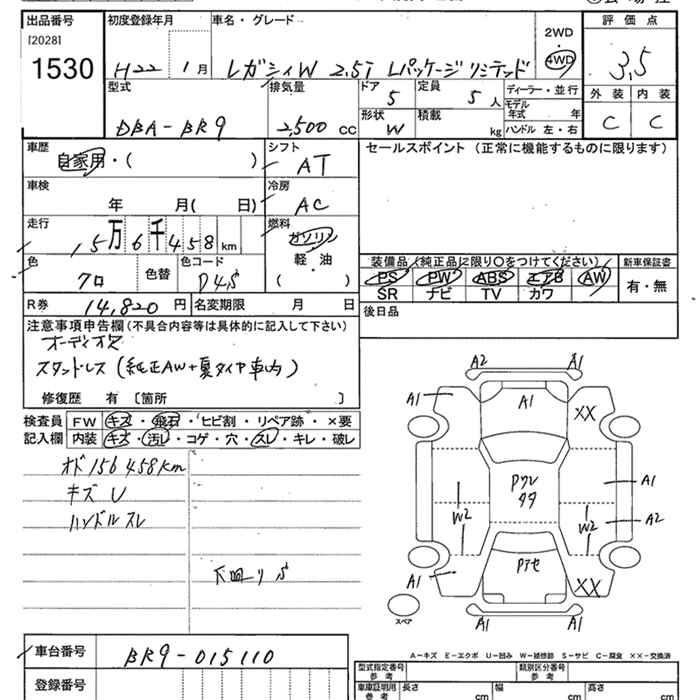 出品番号 初度登録年月 車名・グレード 2WD 評価点
[2028]
1530 H22 1月 レガシィW 2.5i Lパッケージリミテッド 4WD 3.5
型式 排気量 ドア 定員 ディーラー・並行 外装 内装
5 5人 モデル年式 年
DBA-BR9 2,500cc 形状 積載 C C
W kg ハンドル 左・右
車歴 シフト セールスポイント (正常に機能するものに限ります)
自家用・( ) AT
車検 冷房
年 月( 日) AC
走行 燃料
15万6千458km ガソリン
色 色替 色コード 軽・油 装備品(純正品に限り○をつけてください) 新車保証書
クロ D4S ( ) PS PW ABS エアB AW 有・無
SR ナビ TV カワ
R券 14,820円 名変期限 月 日 後日品
注意事項申告欄(不具合内容等は具体的に記入して下さい)
オーディオ欠
スタッドレス(純正AW+夏タイヤ車内)
修復歴 有 〔箇所 〕
検査員 FW キズ・飛石・ヒビ割・リペア跡・×要
記入欄 内装 キズ・汚レ・コゲ・穴・スレ・キレ・破レ
オド156458km
キズU
ハンドルスレ
下回りS
A2 A1
A1 A1 XX
A1
W2 W2 A2
A1 XX
A1 A1
スペア
A-キズ E-エクボ U-凹み W-補修跡 S-サビ C-腐食 XX-交換済
車台番号 BR9-015110
型式指定番号 参考 類別区分番号 参考
登録番号
車庫証明用 参考 長さ cm 幅 cm 高さ cm